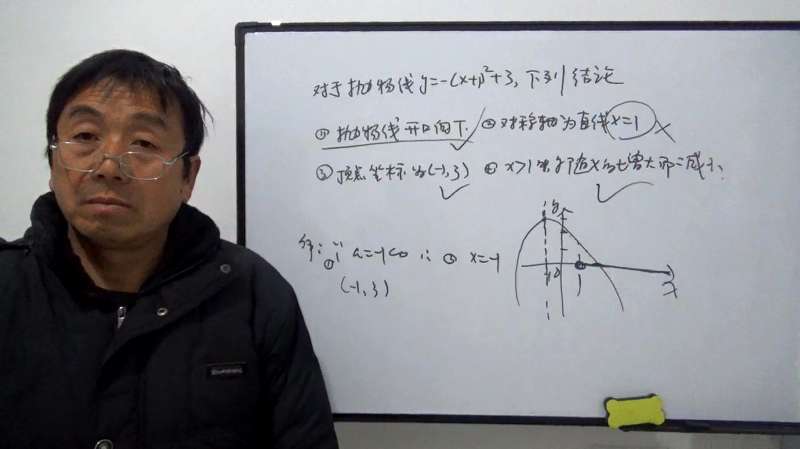 对于抛物线y=-(x+1)²+3, 下列结论
① 抛物线开口向下. ✓ ② 对称轴为直线x=1 ×
③ 顶点坐标为(-1,3) ✓ ④ x>1时y随x的增大而减小; ✓
解: ① ∵ a=-1<0 ∴ ② x=-1
(-1,3)
y
-1 0 1 x